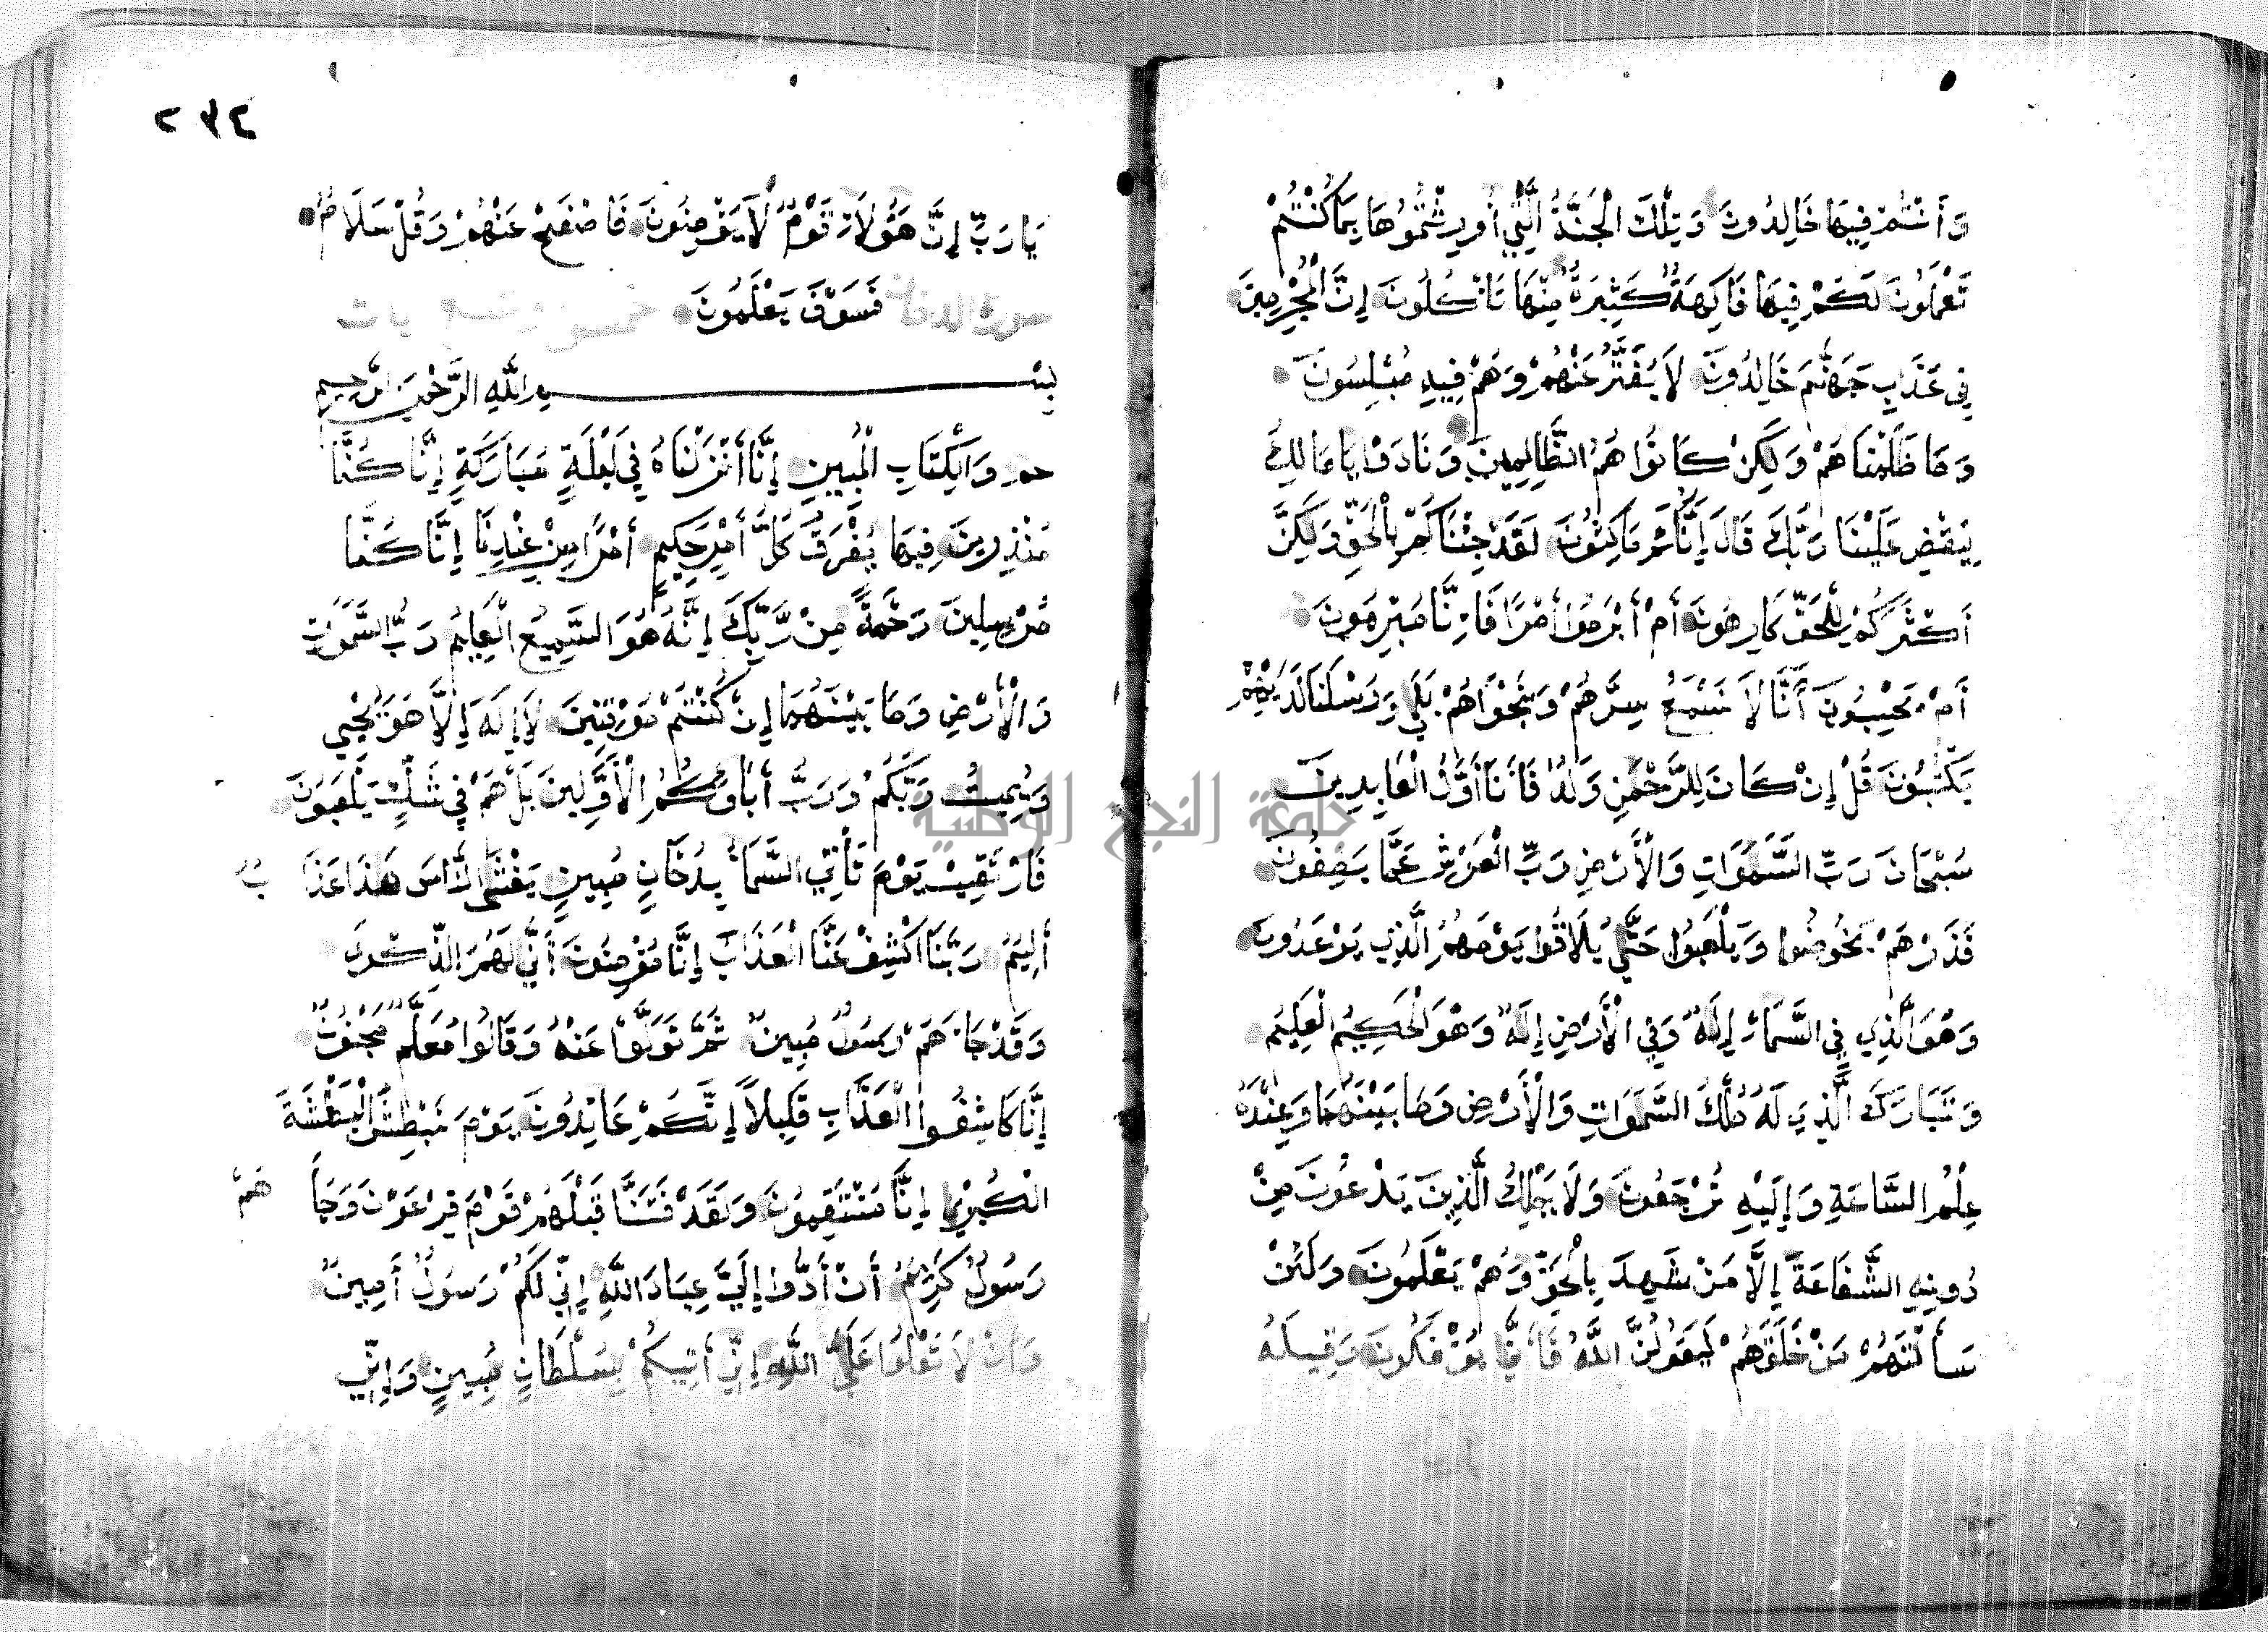 وَأَنْتُمْ فِيهَا خَالِدُونَ وَتِلْكَ الْجَنَّةُ الَّتِي أُورِثْتُمُوهَا بِمَا كُنْتُمْ
تَعْمَلُونَ لَكُمْ فِيهَا فَاكِهَةٌ كَثِيرَةٌ مِنْهَا تَأْكُلُونَ إِنَّ الْمُجْرِمِينَ
فِي عَذَابِ جَهَنَّمَ خَالِدُونَ لَا يُفَتَّرُ عَنْهُمْ وَهُمْ فِيهِ مُبْلِسُونَ
وَمَا ظَلَمْنَاهُمْ وَلَكِنْ كَانُوا هُمُ الظَّالِمِينَ وَنَادَوْا يَا مَالِكُ
لِيَقْضِ عَلَيْنَا رَبُّكَ قَالَ إِنَّكُمْ مَاكِثُونَ لَقَدْ جِئْنَاكُمْ بِالْحَقِّ وَلَكِنَّ
أَكْثَرَكُمْ لِلْحَقِّ كَارِهُونَ أَمْ أَبْرَمُوا أَمْرًا فَإِنَّا مُبْرِمُونَ
أَمْ يَحْسِبُونَ أَنَّا لَا نَسْمَعُ سِرَّهُمْ وَنَجْوَاهُمْ بَلَى وَرُسُلُنَا لَدَيْهِمْ
يَكْتُبُونَ قُلْ إِنْ كَانَ لِلرَّحْمَنِ وَلَدٌ فَأَنَا أَوَّلُ الْعَابِدِينَ
سُبْحَانَ رَبِّ السَّمَوَاتِ وَالْأَرْضِ رَبِّ الْعَرْشِ عَمَّا يَصِفُونَ
فَذَرْهُمْ يَخُوضُوا وَيَلْعَبُوا حَتَّى يُلَاقُوا يَوْمَهُمُ الَّذِي يُوعَدُونَ
وَهُوَ الَّذِي فِي السَّمَاءِ إِلَهٌ وَفِي الْأَرْضِ إِلَهٌ وَهُوَ الْحَكِيمُ الْعَلِيمُ
وَتَبَارَكَ الَّذِي لَهُ مُلْكُ السَّمَوَاتِ وَالْأَرْضِ وَمَا بَيْنَهُمَا وَعِنْدَهُ
عِلْمُ السَّاعَةِ وَإِلَيْهِ تُرْجَعُونَ وَلَا يَمْلِكُ الَّذِينَ يَدْعُونَ مِنْ
دُونِهِ الشَّفَاعَةَ إِلَّا مَنْ شَهِدَ بِالْحَقِّ وَهُمْ يَعْلَمُونَ وَلَئِنْ
سَأَلْتَهُمْ مَنْ خَلَقَهُمْ لَيَقُولُنَّ اللَّهُ فَأَنَّى يُؤْفَكُونَ وَقِيلَهُ
٢٣٤
يَا رَبِّ إِنَّ هَؤُلَاءِ قَوْمٌ لَا يُؤْمِنُونَ فَاصْفَحْ عَنْهُمْ وَقُلْ سَلَامٌ
فَسَوْفَ يَعْلَمُونَ
بِسْمِ اللَّهِ الرَّحْمَنِ الرَّحِيمِ
حم وَالْكِتَابِ الْمُبِينِ إِنَّا أَنْزَلْنَاهُ فِي لَيْلَةٍ مُبَارَكَةٍ إِنَّا كُنَّا
مُنْذِرِينَ فِيهَا يُفْرَقُ كُلُّ أَمْرٍ حَكِيمٍ أَمْرًا مِنْ عِنْدِنَا إِنَّا كُنَّا
مُرْسِلِينَ رَحْمَةً مِنْ رَبِّكَ إِنَّهُ هُوَ السَّمِيعُ الْعَلِيمُ رَبُّ السَّمَوَاتِ
وَالْأَرْضِ وَمَا بَيْنَهُمَا إِنْ كُنْتُمْ مُوقِنِينَ لَا إِلَهَ إِلَّا هُوَ يُحْيِي
وَيُمِيتُ رَبُّكُمْ وَرَبُّ أَبَائِكُمُ الْأَوَّلِينَ بَلْ هُمْ فِي شَكٍّ يَلْعَبُونَ
فَارْتَقِبْ يَوْمَ تَأْتِي السَّمَاءُ بِدُخَانٍ مُبِينٍ يَغْشَى النَّاسَ هَذَا عَذَا بٌ
أَلِيمٌ رَبَّنَا اكْشِفْ عَنَّا الْعَذَابَ إِنَّا مُؤْمِنُونَ أَنَّى لَهُمُ الذِّكْرَى
وَقَدْ جَاءَهُمْ رَسُولٌ مُبِينٌ ثُمَّ تَوَلَّوْا عَنْهُ وَقَالُوا مُعَلَّمٌ مَجْنُونٌ
إِنَّا كَاشِفُوا الْعَذَابِ قَلِيلًا إِنَّكُمْ عَائِدُونَ يَوْمَ نَبْطِشُ الْبَطْشَةَ
الْكُبْرَى إِنَّا مُنْتَقِمُونَ وَلَقَدْ فَتَنَّا قَبْلَهُمْ قَوْمَ فِرْعَوْنَ وَجَاءَ هُمْ
رَسُولٌ كَرِيمٌ أَنْ أَدُّوا إِلَيَّ عِبَادَ اللَّهِ إِنِّي لَكُمْ رَسُولٌ أَمِينٌ
وَأَنْ لَا تَعْلُوا عَلَى اللَّهِ إِنِّي أَتِيكُمْ بِسُلْطَانٍ مُبِينٍ وَإِنِّي
جامعة النجاح الوطنية